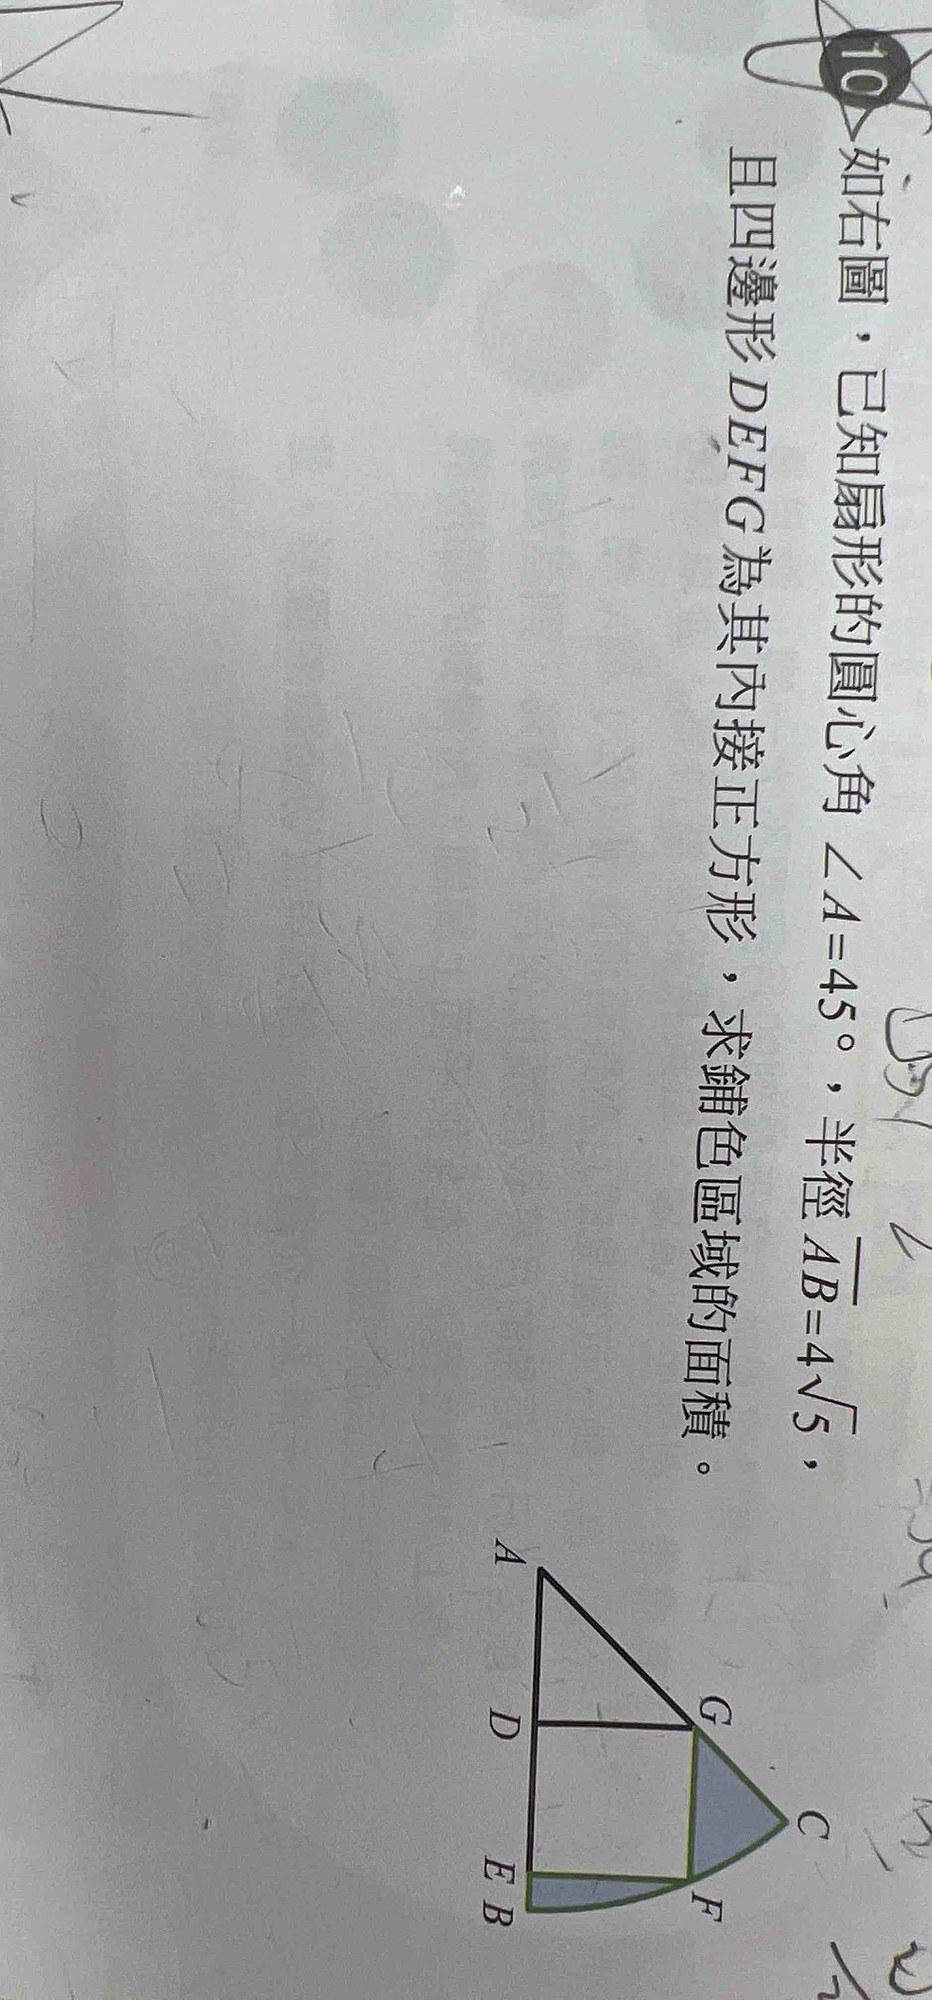 10 如右圖，已知扇形的圓心角 ∠A=45°，半徑 AB=4√5，
且四邊形DEFG為其內接正方形，求鋪色區域的面積。
C
G
F
A
D
E
B